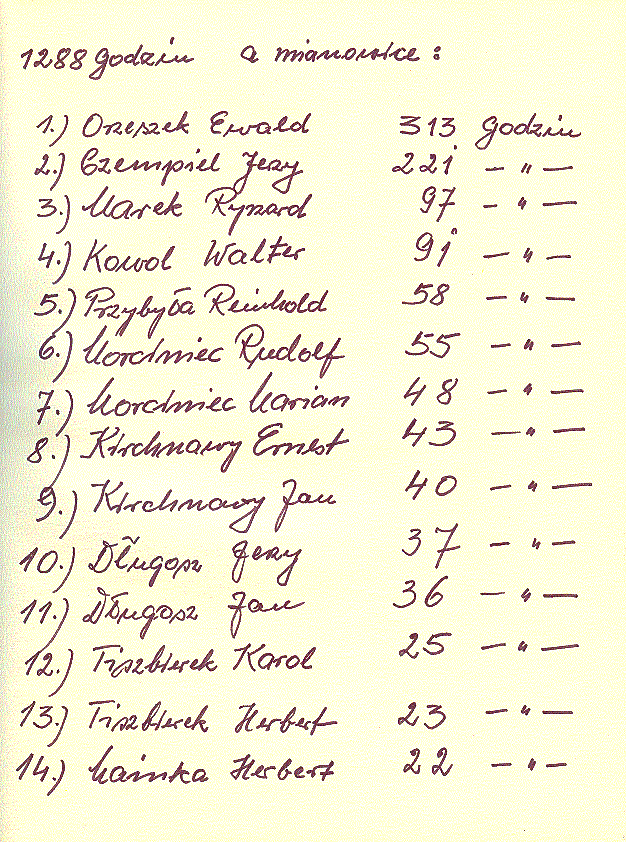 1288 godzin a mianowice :
1.) Orzeszek Ewald 313 godzin
2.) Czempiel Jerzy 221 — " —
3.) Marek Ryszard 97 — " —
4.) Kowol Walter 91 — " —
5.) Przybyła Reinhold 58 — " —
6.) Morciniec Rudolf 55 — " —
7.) Morciniec Marian 48 — " —
8.) Kirchnawy Ernest 43 — " —
9.) Kirchnawy Jan 40 — " —
10.) Długosz Jerzy 37 — " —
11.) Długosz Jan 36 — " —
12.) Tiszbierek Karol 25 — " —
13.) Tiszbierek Herbert 23 — " —
14.) Mainka Herbert 22 — " —